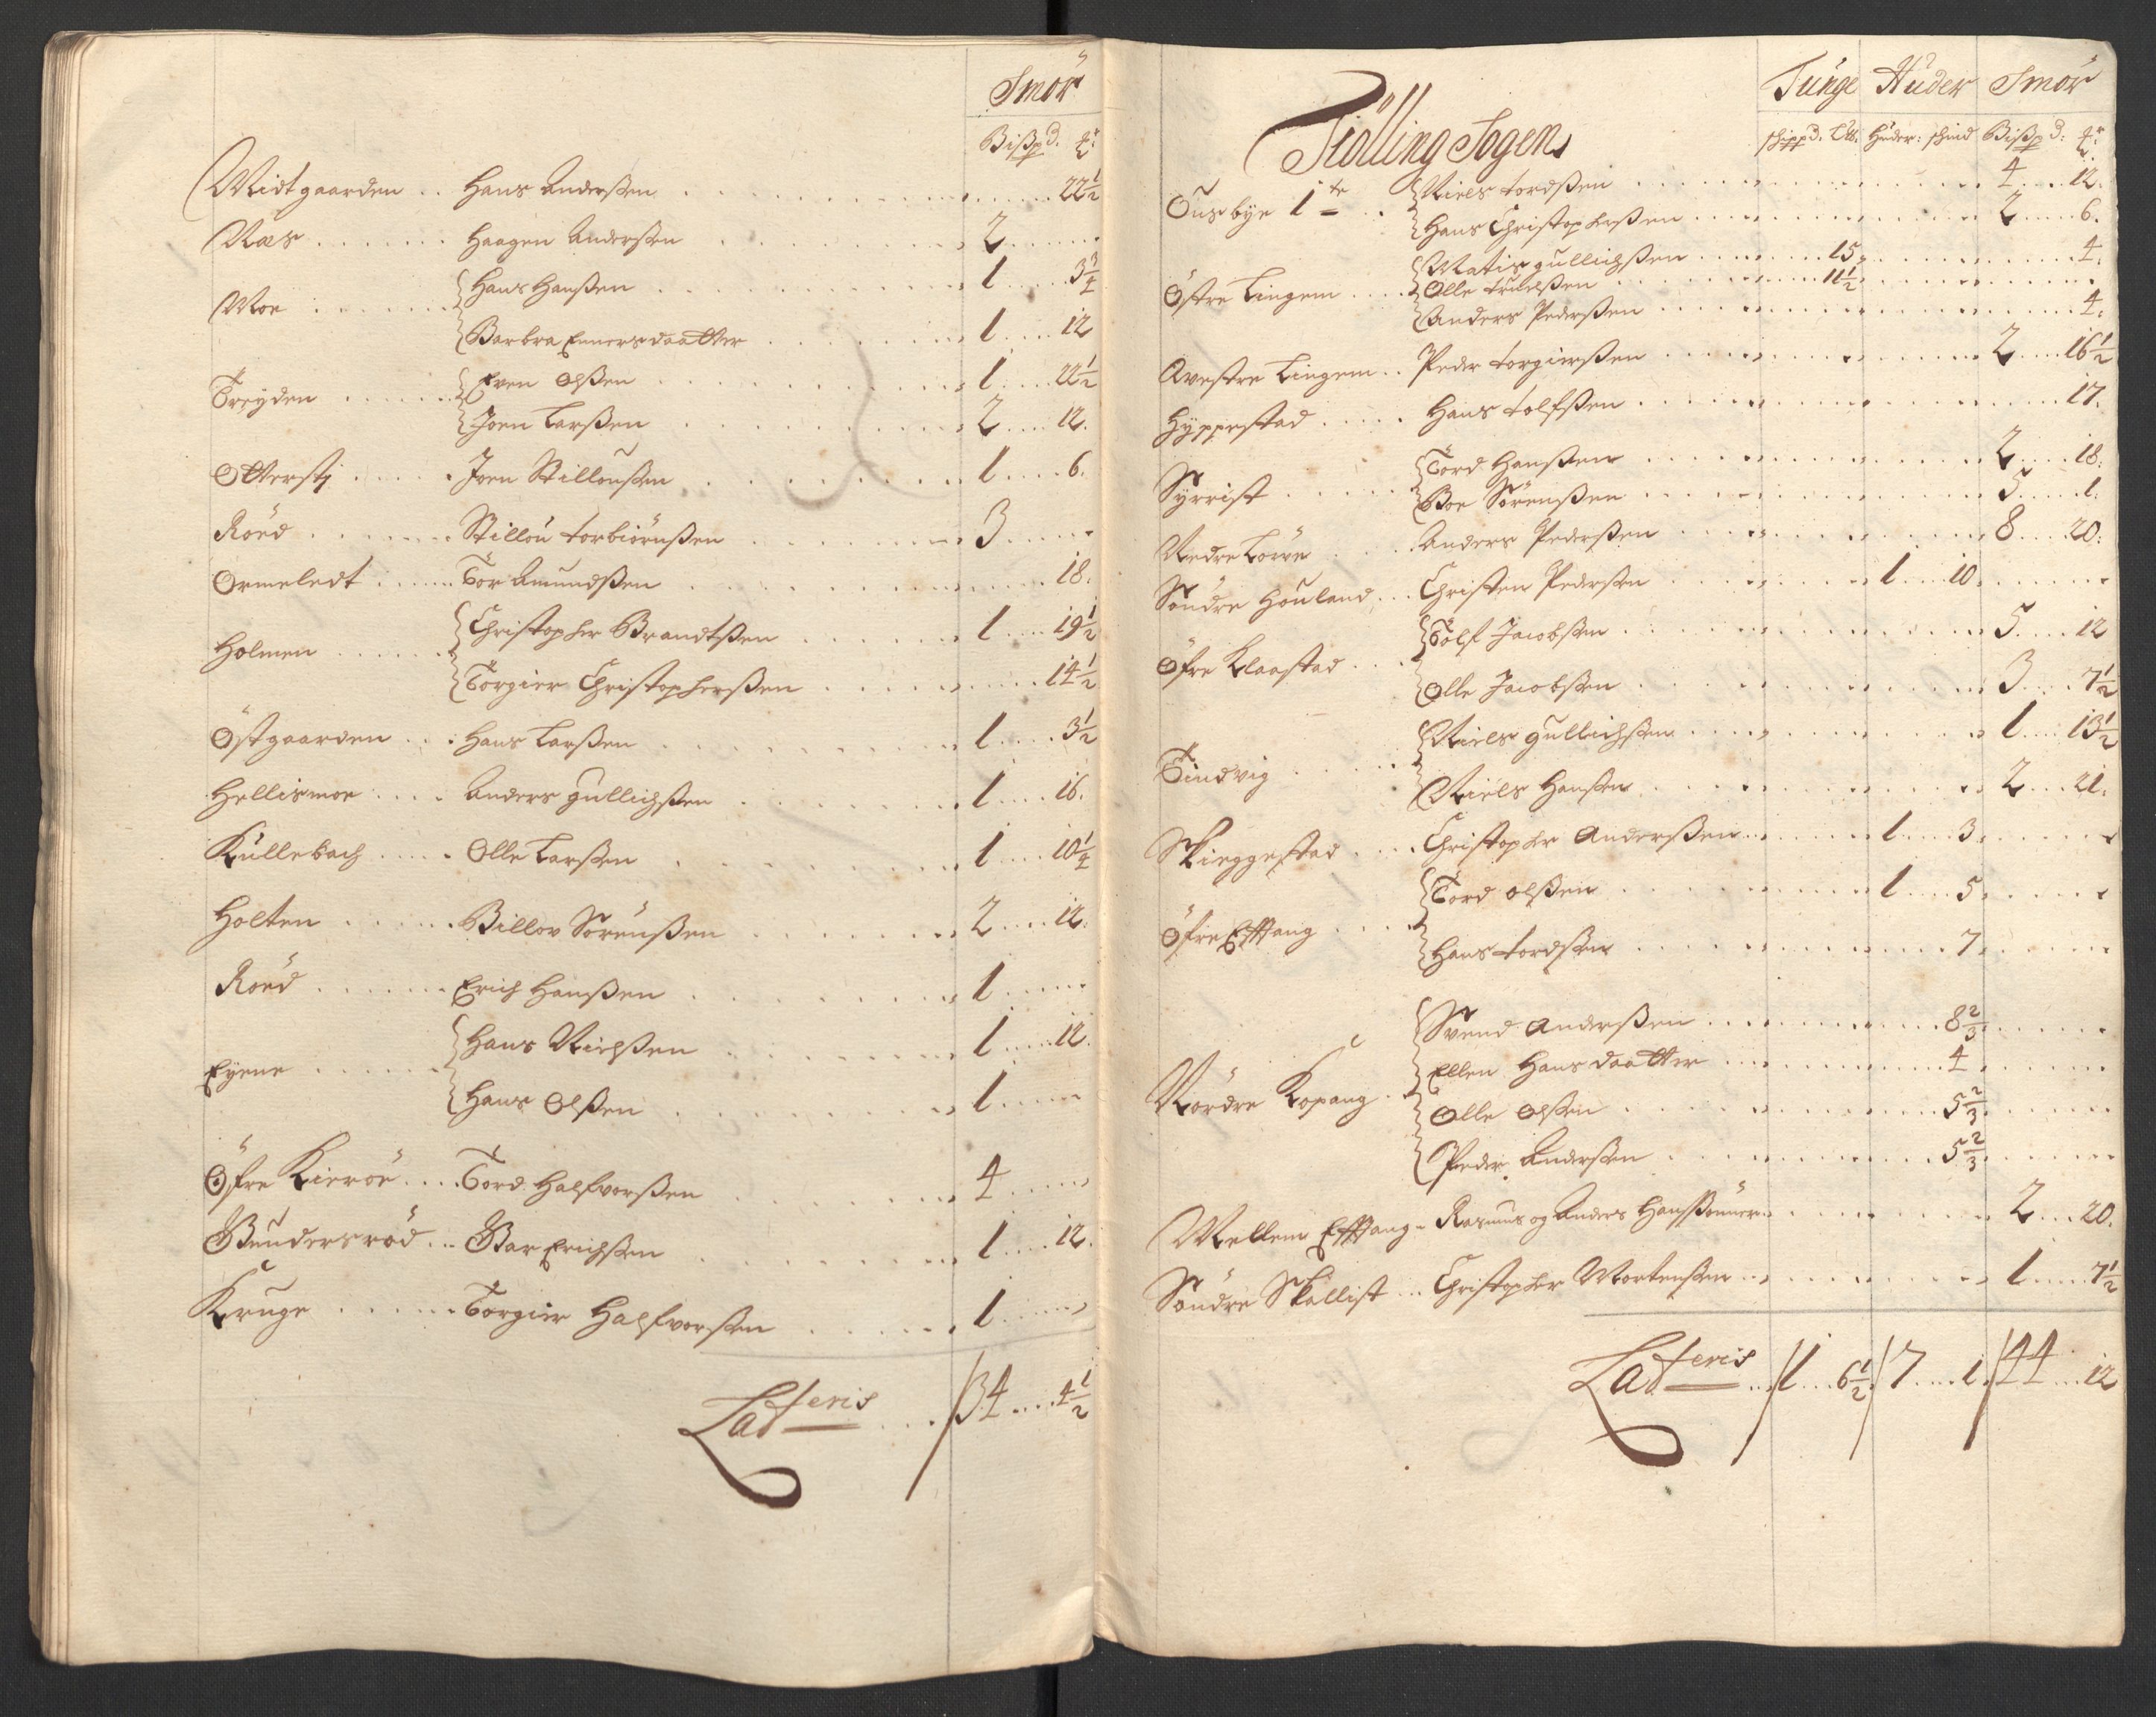 Smör
Bißpd. ℔r
Midtgaarden .. Hans Anderßen ........ 22½
Næs ...... Haagen Anderßen ........ 2 ....
Moe ...... Hans Hanßen ........ 1 .... 3¾
Barbra Enersdaatter ........ 1 .... 12
Treyden ...... Even Olßen ........ 1 .... 22½
Joen Larßen ........ 2 .... 12.
Otterstj ...... Joen Stillouſen ........ 1 .... 6.
Röed ...... Stillou torbiörnßen ........ 3 ....
Ormeledt ...... Tor Amundßen ........ 18.
Holmen ...... Christopher Brandtßen ........ 1 .... 19½
Torgier Christopherßen ........ 14½
Östgaarden ... Hans Larßen ........ 1 .... 3½
Hellismoe .... Anders Gullichßen ........ 1 .... 16.
Küllebach ..... Olle Larßen ........ 1 .... 10¼
Holten ...... Billov Sörenßen ........ 2 .... 12.
Röed ...... Erich Hanßen ........ 1 ....
Eyene ...... Hans Nielßen ........ 1 .... 12.
Hans Olßen ........ 1 ....
Öfre Kieröe .... Tord Halfvorßen ........ 4 ....
Gundersröd ... Bar Erichßen ........ 1 .... 12.
Kruge ...... Torgier Halfvorßen ........ 1 ....
Lateris .... 34 .... 4½
Tiölling Sogen
Tunge Huder Smör
schippd. L℔. Huder: skind Bißpd: ℔r
Ousbye 1te .. Niels tordßen ........ 4 .... 12.
Hans Christopherßen ........ 2 .... 6.
Östre Lingem .... Matis gullichßen ........ 15 ........ 4.
Olle truelßen ........ 11½ ........
Anders Pederßen ........ 4.
Avestre Lingem .. Peder torgierßen ........ 2 .... 16½
Hyppestad ..... Hans tolfßen ........ 17.
Syrrist ..... Tord Hanßen ........ 2 .... 18.
Boe Sörenßen ........ 5 .... 1.
Nedre Löwe .... Anders Pederßen ........ 8 .... 20.
Söndre Houland ... Christen Pederßen ........ 1 .... 10 ........
Öfre Klaastad .... Tolf Jacobßen ........ 5 .... 12
Olle Jacobßen ........ 3 .... 7½
Tindvig ...... Niels gullichßen ........ 1 .... 13½
Niels Hanßen ........ 2 .... 21.
Skieggestad .... Christopher Anderßen ........ 1 .... 3 ........
Öfre Efftang .... Tord olßen ........ 1 .... 5 ........
Hans tordßen ........ 7 ........
Nördre Kopang .. Svend Anderßen ........ 8⅔ ........
Ellen Hansdaatter ........ 4 ........
Olle Olßen ........ 5⅔ ........
Peder Anderßen ........ 5⅔ ........
Mellem Efftang - Rasmus og Anders Hanßönner ........ 2 .... 20.
Söndre Skallist ... Christopher Mortenßen ........ 1 .... 7½
Lateris ... 1 ... 6½ 7 ... 1. 44 ... 12